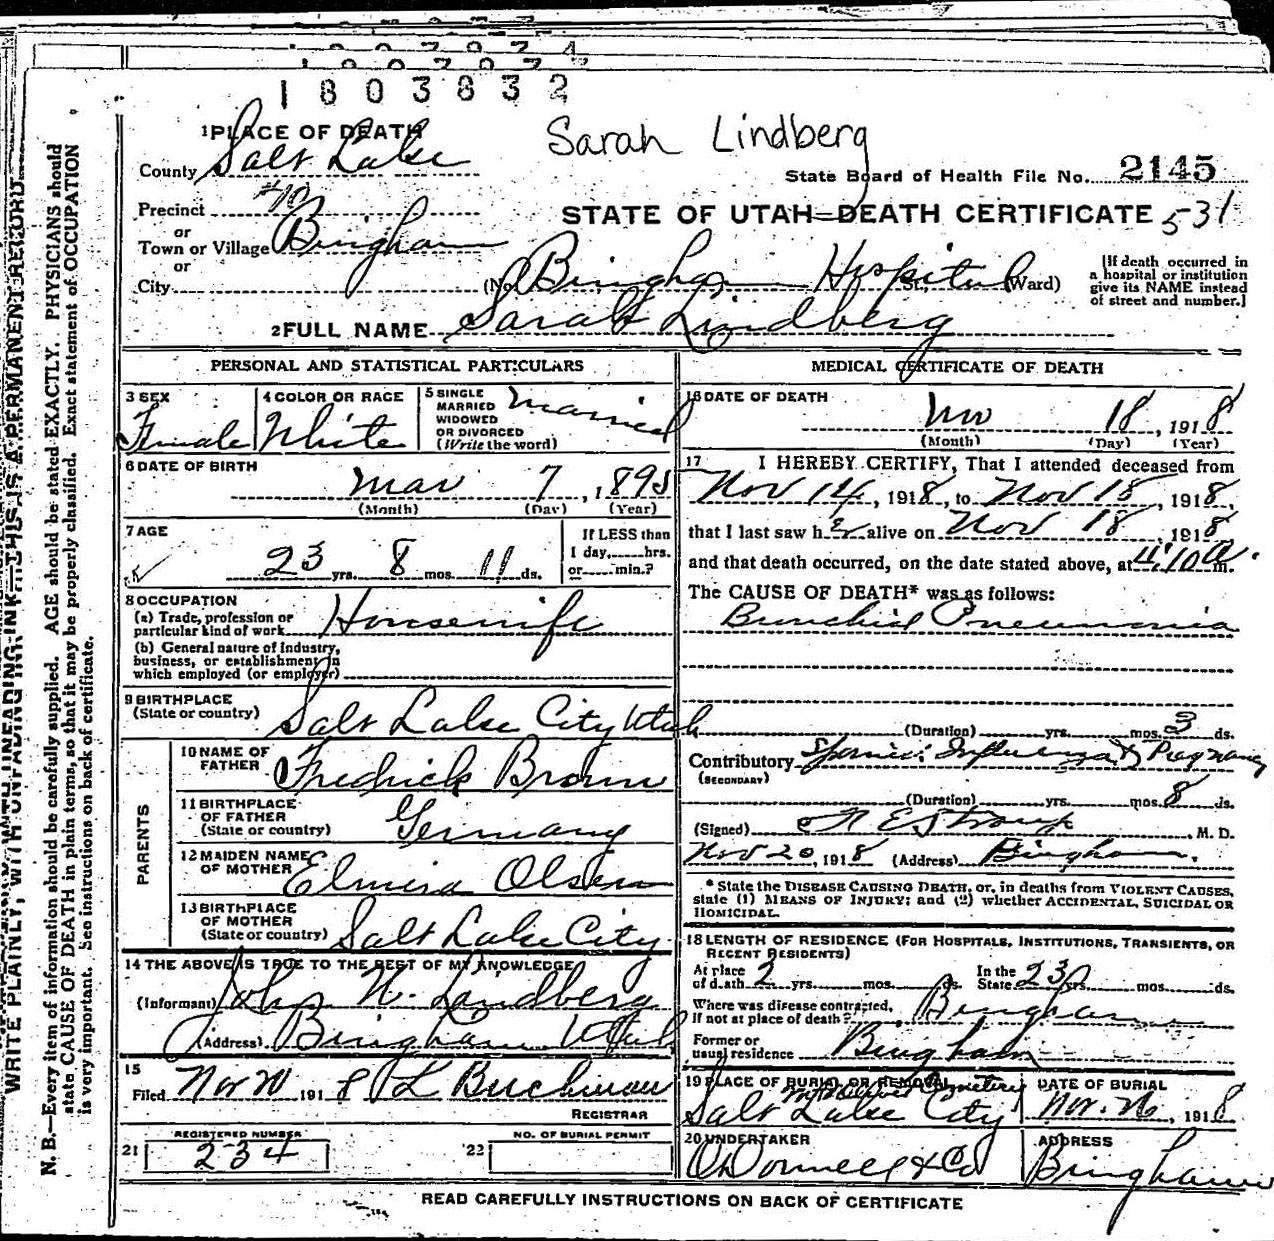 1803832
1 PLACE OF DEATH
Sarah Lindberg
County Salt Lake
State Board of Health File No. 2145
Precinct #10
STATE OF UTAH—DEATH CERTIFICATE 531
or
Town or Village Bingham
or
City (No. Bingham Hospital St., Ward)
[If death occurred in
a hospital or institution
give its NAME instead
of street and number.]
2 FULL NAME Sarah Lindberg
PERSONAL AND STATISTICAL PARTICULARS
3 SEX
Female
4 COLOR OR RACE
White
5 SINGLE
MARRIED
WIDOWED
OR DIVORCED
(Write the word)
Married
6 DATE OF BIRTH
Mar 7, 1895
(Month) (Day) (Year)
7 AGE
23 yrs. 8 mos. 11 ds.
If LESS than
1 day, hrs.
or min.?
8 OCCUPATION
(a) Trade, profession or
particular kind of work Housewife
(b) General nature of Industry,
business, or establishment in
which employed (or employer)
9 BIRTHPLACE
(State or country) Salt Lake City Utah
PARENTS
10 NAME OF
FATHER Fredrick Brown
11 BIRTHPLACE
OF FATHER
(State or country) Germany
12 MAIDEN NAME
OF MOTHER Elmira Olsen
13 BIRTHPLACE
OF MOTHER
(State or country) Salt Lake City
14 THE ABOVE IS TRUE TO THE BEST OF MY KNOWLEDGE
(Informant) John N. Lindberg
(Address) Bingham Utah
15
Filed Nov 20 1918 Buchman
REGISTRAR
21 REGISTERED NUMBER
234
22 NO. OF BURIAL PERMIT
MEDICAL CERTIFICATE OF DEATH
16 DATE OF DEATH
Nov 18, 1918
(Month) (Day) (Year)
17 I HEREBY CERTIFY, That I attended deceased from
Nov 14, 1918, to Nov 18, 1918,
that I last saw her alive on Nov 18, 1918
and that death occurred, on the date stated above, at 4:10 a. m.
The CAUSE OF DEATH* was as follows:
Bronchial Pneumonia
(Duration) yrs. mos. 3 ds.
Contributory Spanish Influenza & Pregnancy
(SECONDARY)
(Duration) yrs. mos. 8 ds.
(Signed) M. D.
Nov 20, 1918 (Address) Bingham.
* State the DISEASE CAUSING DEATH, or, in deaths from VIOLENT CAUSES,
state (1) MEANS OF INJURY; and (2) whether ACCIDENTAL, SUICIDAL OR
HOMICIDAL.
18 LENGTH OF RESIDENCE (FOR HOSPITALS, INSTITUTIONS, TRANSIENTS, OR
RECENT RESIDENTS)
At place
of death 2 yrs. mos. ds.
In the
State 23 yrs. mos. ds.
Where was disease contracted,
if not at place of death? Bingham
Former or
usual residence Bingham
19 PLACE OF BURIAL OR REMOVAL
Mt Olivet Cemetery
Salt Lake City
DATE OF BURIAL
Nov. , 1918
20 UNDERTAKER
O'Donnell & Co
ADDRESS
Bingham
READ CAREFULLY INSTRUCTIONS ON BACK OF CERTIFICATE
WRITE PLAINLY, WITH UNFADING INK—THIS IS A PERMANENT RECORD
N. B.—Every item of information should be carefully supplied. AGE should be stated EXACTLY. PHYSICIANS should
state CAUSE OF DEATH in plain terms, so that it may be properly classified. Exact statement of OCCUPATION
is very important. See instructions on back of certificate.